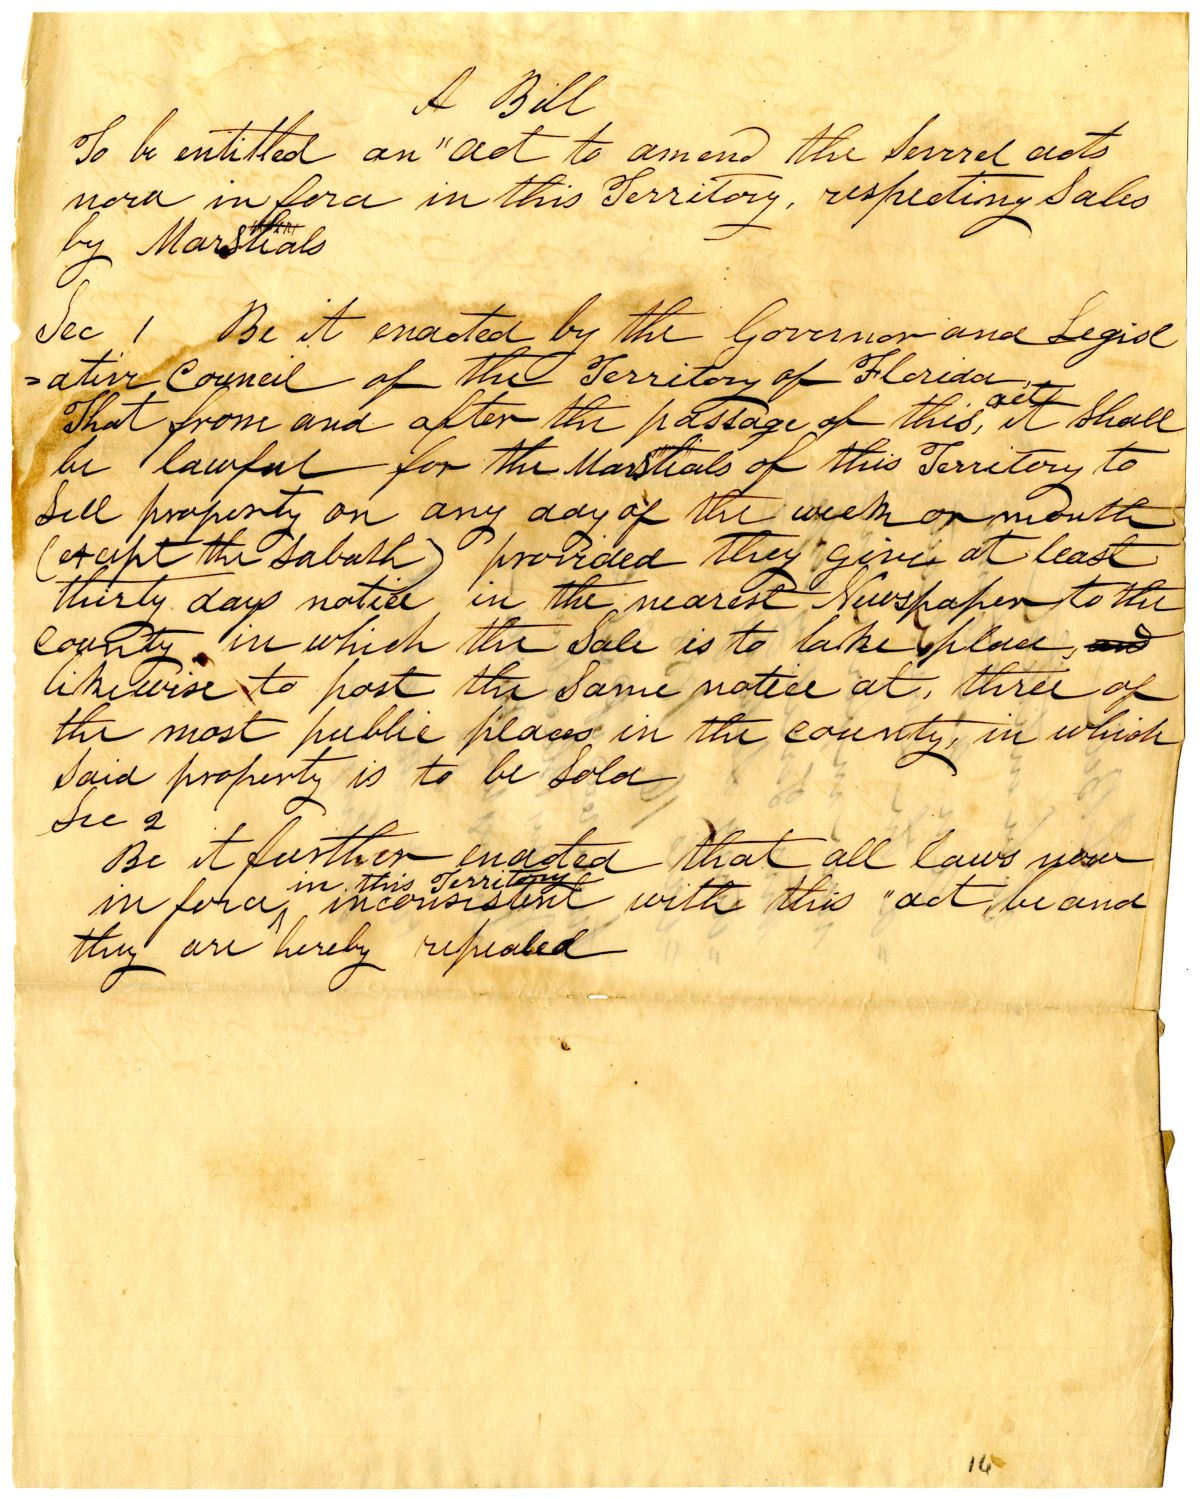 A Bill
To be entitled an "act to amend the several acts
now in force in this Territory, respecting Sales
by Marshals
Sec 1 Be it enacted by the Governor and Legisl
=ative Council of the Territory of Florida,
That from and after the passage of this, act it shall
be lawful for the Marshals of this Territory to
Sell property on any day of the week or month
(except the Sabath) provided they give at least
thirty days notice in the nearest Newspaper to the
county in which the Sale is to take place, and
likewise to post the same notice at, three of
the most public places in the county, in which
said property is to be Sold
Sec 2
Be it further enacted that all laws now
in force, in this Territory inconsistent with this "act, be and
they are hereby repealed
14